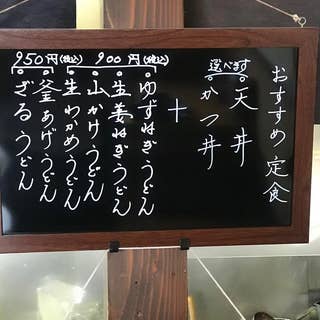 おすすめ定食
選べます
天丼
かつ丼
+
900円(税込)
ゆずねぎうどん
生姜ねぎうどん
山かけうどん
生わかめうどん
950円(税込)
釜あげうどん
ざるうどん